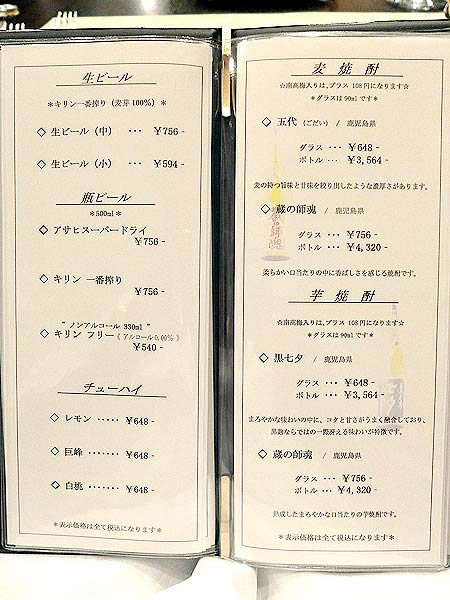 生ビール
＊キリン一番搾り（麦芽100%）＊
◇ 生ビール（中） ･･･ ¥756-
◇ 生ビール（小） ･･･ ¥594-
瓶ビール
＊500ml＊
◇ アサヒスーパードライ
¥756-
◇ キリン 一番搾り
¥756-
" ノンアルコール 330ml "
◇ キリン フリー《アルコール0.00%》
¥540-
チューハイ
◇ レモン ･････ ¥648-
◇ 巨峰 ･･････ ¥648-
◇ 白桃 ･･････ ¥648-
＊表示価格は全て税込になります＊
麦焼酎
☆南高梅入りは、プラス 108円になります☆
＊グラスは90mlです＊
◇ 五代（ごだい） / 鹿児島県
グラス ･･･ ¥648-
ボトル ･･･ ¥3,564-
麦の持つ旨味と甘味を絞り出したような濃厚さがあります。
◇ 蔵の師魂 / 鹿児島県
グラス ･･･ ¥756-
ボトル ･･･ ¥4,320-
柔らかい口当たりの中に香ばしさを感じる焼酎です。
芋焼酎
☆南高梅入りは、プラス 108円になります☆
＊グラスは90mlです＊
◇ 黒七夕 / 鹿児島県
グラス ･･･ ¥648-
ボトル ･･･ ¥3,564-
まろやかな味わいの中に、コクと甘さがうまく融合しており、
黒麹ならではの一際冴える味わいが特徴です。
◇ 蔵の師魂 / 鹿児島県
グラス ･･･ ¥756-
ボトル ･･･ ¥4,320-
熟成したまろやかな口当たりの芋焼酎です。
＊表示価格は全て税込になります＊